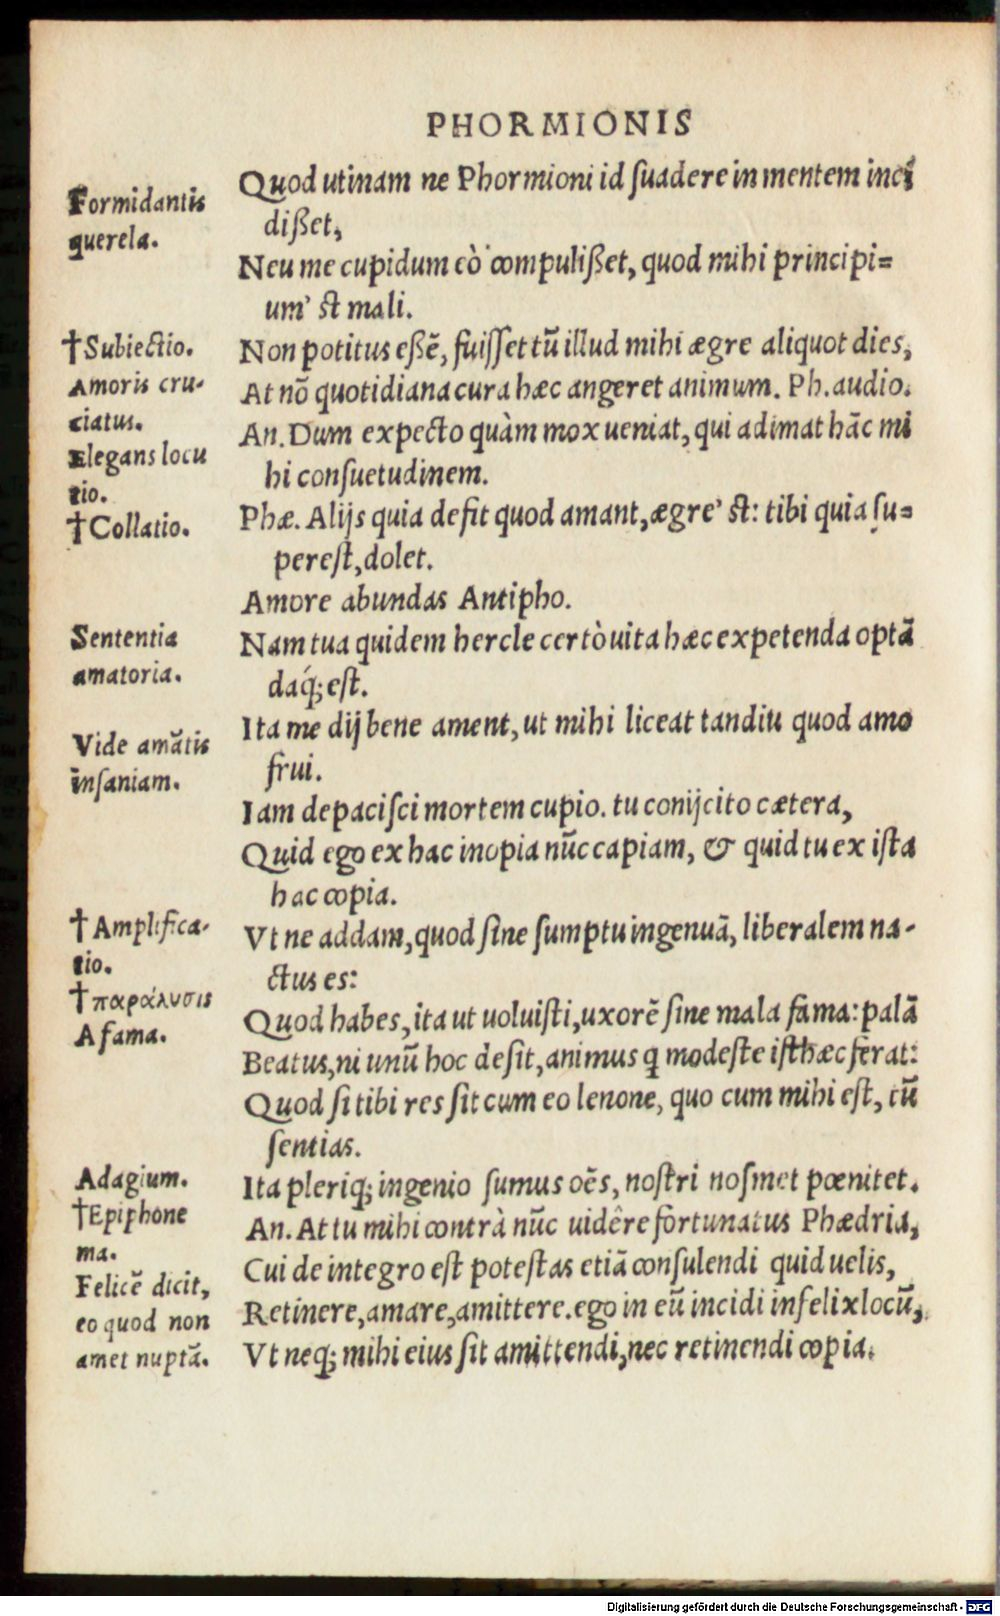 PHORMIONIS
Formidantis
querela.
Quod utinam ne Phormioni id ſuadere in mentem inci
dißet,
Neu me cupidum eò compulißet, quod mihi principi=
um' ſt mali.
†Subiectio.
Amoris cru-
ciatus.
Elegans locu
tio.
†Collatio.
Non potitus eßē, fuiſſet tū illud mihi ægre aliquot dies,
At nō quotidiana cura hæc angeret animum. Ph. audio.
An. Dum expecto quàm mox ueniat, qui adimat hāc mi
hi conſuetudinem.
Phæ. Alijs quia defit quod amant, ægre' ſt: tibi quia ſu=
pereſt, dolet.
Amore abundas Antipho.
Sententia
amatoria.
Nam tua quidem hercle certò uita hæc expetenda optā
daq́; eſt.
Vide amātis
inſaniam.
Ita me dij bene ament, ut mihi liceat tandiu quod amo
frui.
Iam depaciſci mortem cupio. tu conijcito cætera,
Quid ego ex hac inopia nūc capiam, & quid tu ex iſta
hac copia.
†Amplifica-
tio.
†παράλυσις
A fama.
Vt ne addam, quod ſine ſumptu ingenuā, liberalem na-
ctus es:
Quod habes, ita ut uoluiſti, uxorē ſine mala fama: palā
Beatus, ni unū hoc deſit, animus q modeſte iſthæc ferat:
Quod ſi tibi res ſit cum eo lenone, quo cum mihi eſt, tū
ſentias.
Adagium.
†Epiphone
ma.
Felicē dicit,
eo quod non
amet nuptā.
Ita pleriq; ingenio ſumus oēs, noſtri noſmet pœnitet.
An. At tu mihi contrà nūc uidêre fortunatus Phædria,
Cui de integro eſt poteſtas etiā conſulendi quid uelis,
Retinere, amare, amittere. ego in eū incidi infelix locū,
Vt neq; mihi eius ſit amittendi, nec retinendi copia.
Digitalisierung gefördert durch die Deutsche Forschungsgemeinschaft - DFG